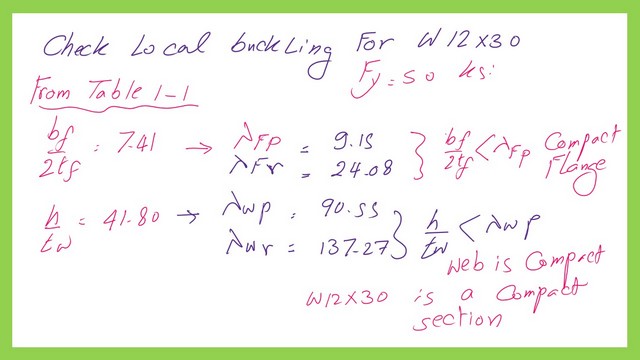 Check Local buckLing For W12x30
Fy=50 ksi
From Table 1-1
bf/2tf = 7.41 → λFp = 9.15 } bf/2tf < λFp Compact Flange
λFr = 24.08
h/tw = 41.80 → λwp = 90.55 } h/tw < λwp
λwr = 137.27
web is Compact
W12x30 is a Compact
section